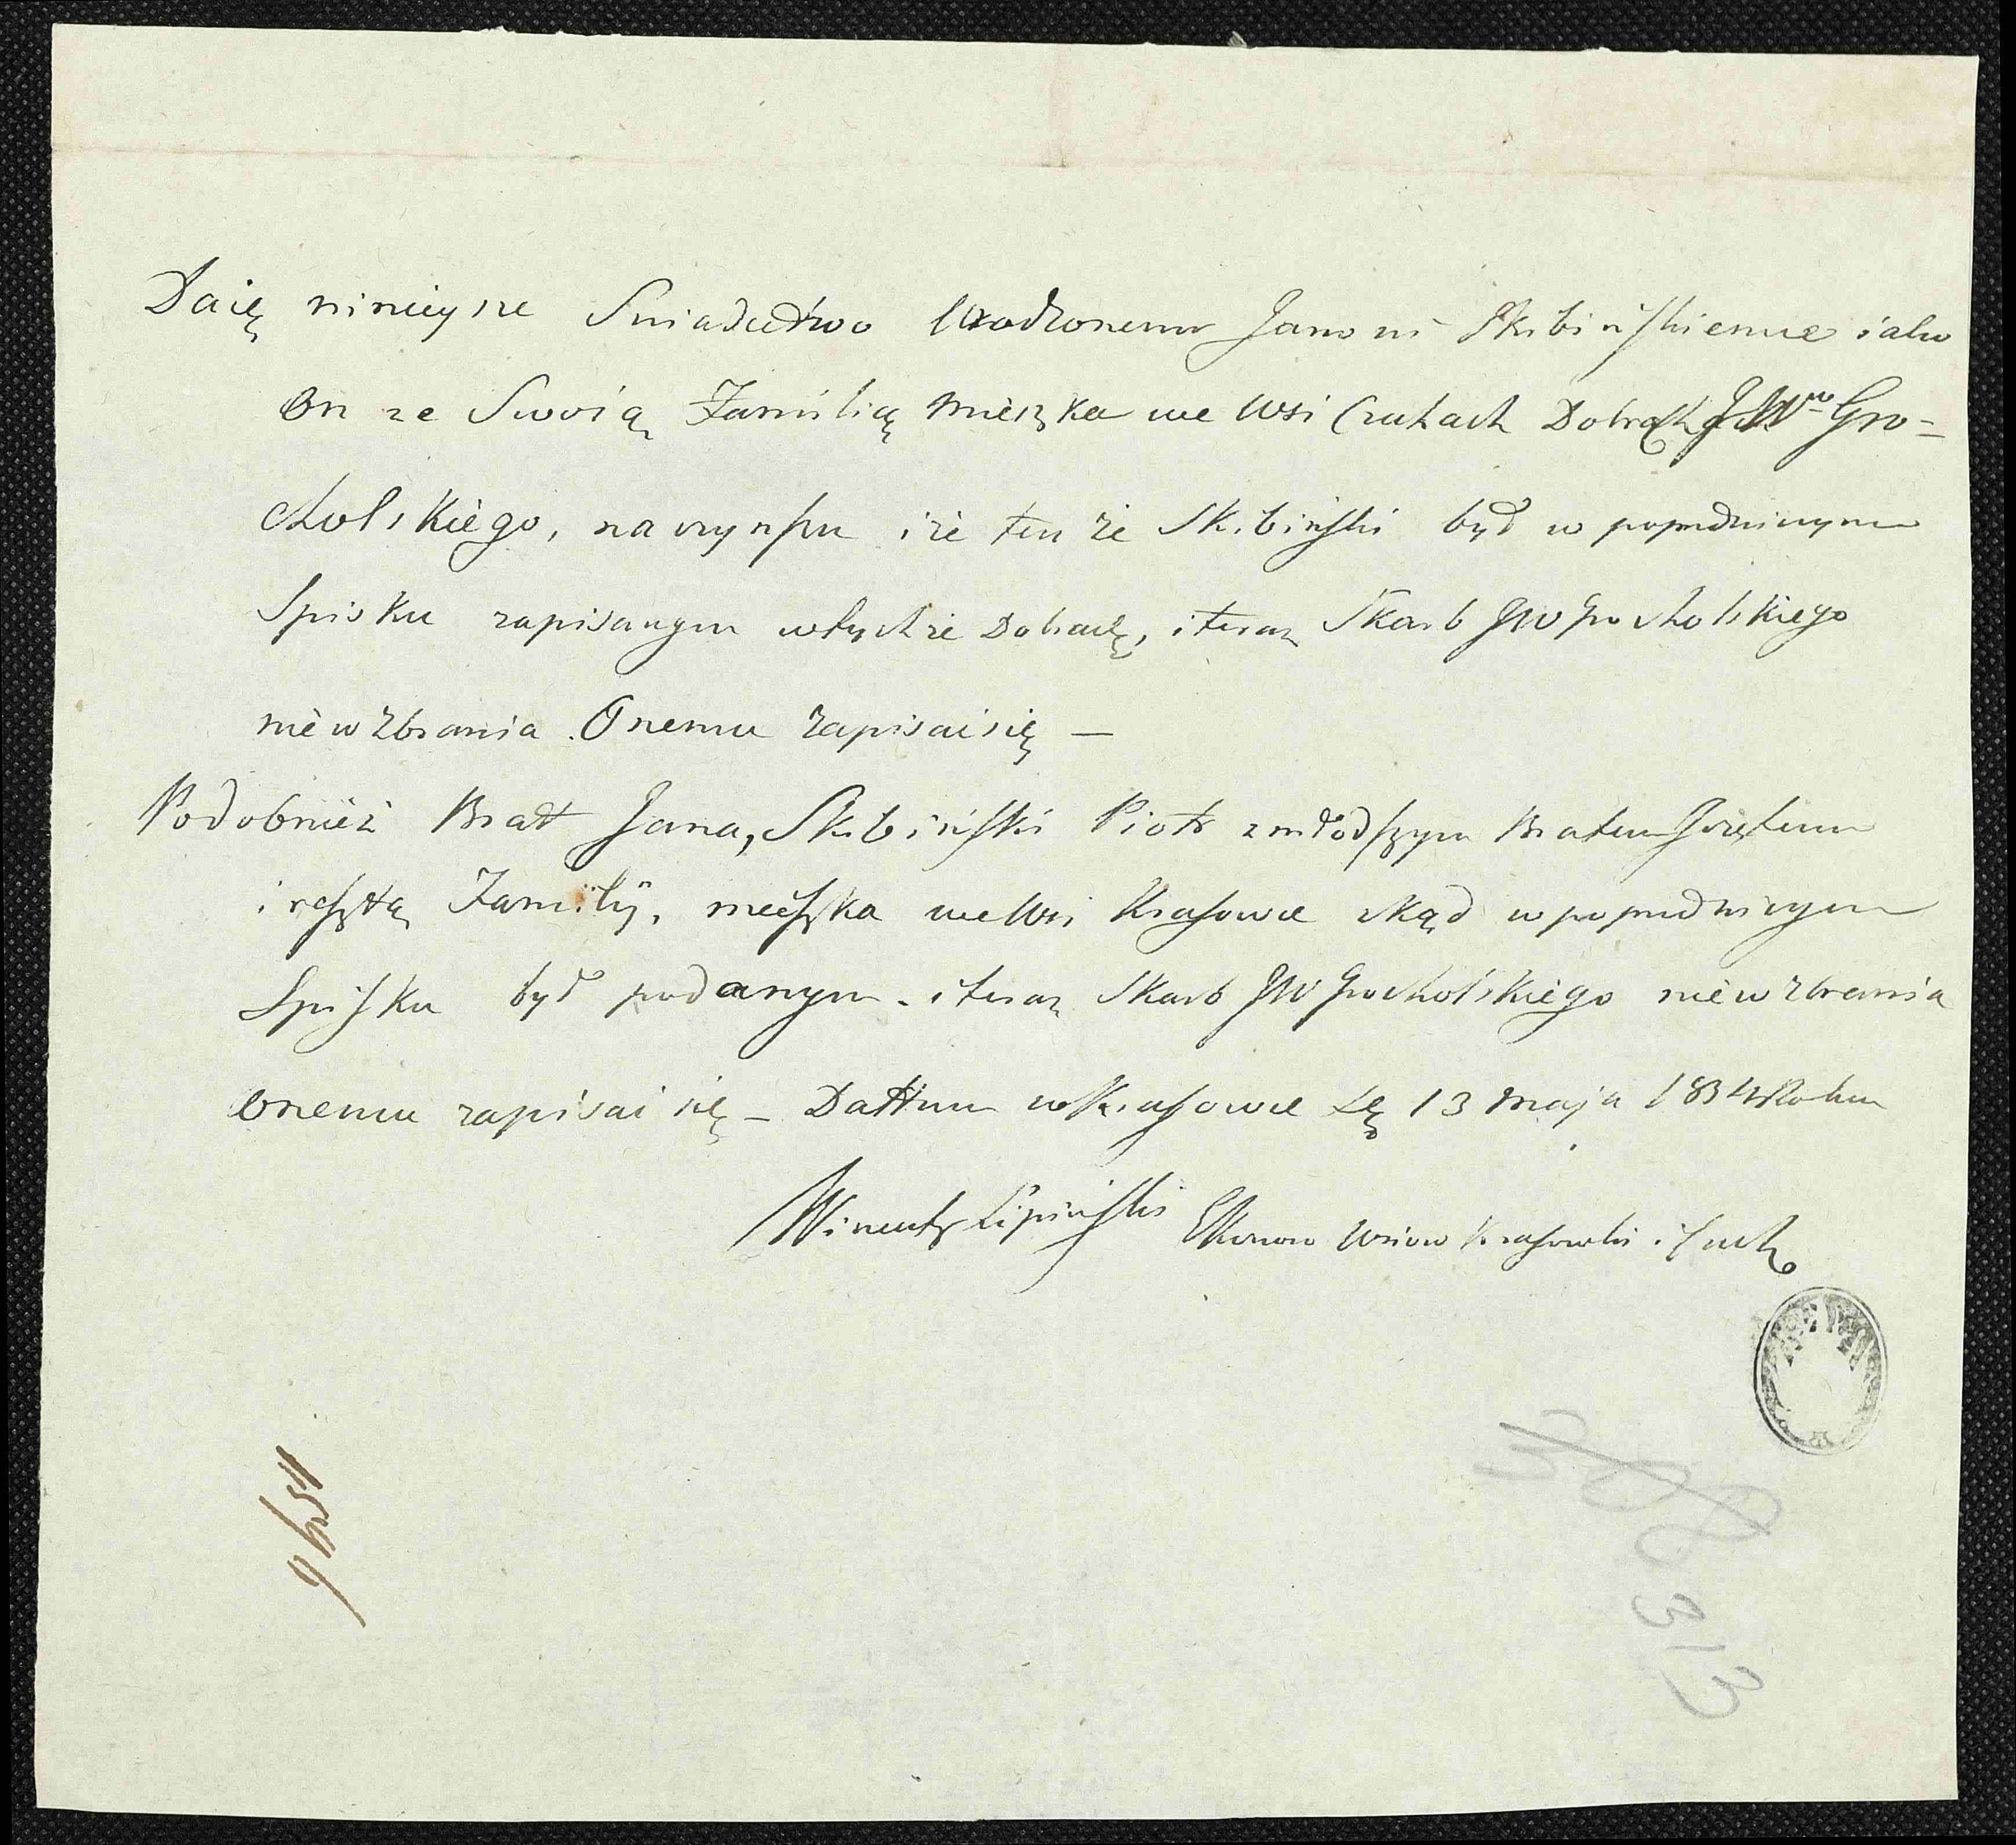 Daię ninieysze Swiadectwo Urodzonemu Janowi Skibińskiemu iako
On ze Swoią Familią Mieszka we Wsi Czuhach Dobrach JWo Gro=
cholskiego, na czynszu iże ten że Skibiński był w poprzedniczym
Spisku zapisanym w tychże Dobrach, i teraz Skarb JW Grocholskiego
nie wzbrania Onemu zapisać się —
Podobnież Bratt Jana, Skibiński Piotr z młodszym Bratem Jozefem
i resztą Familÿ, mieszka we Wsi Krasowce skąd w poprzedniczym
Spisku był podanym. i teraz Skarb JW Grocholskiego nie wzbrania
onemu zapisać się — Dattum w Krasowce D 13 Maja 1834 Roku
Wincenty Lipiński Ekonom Wsiow Krasowki i
1546
313